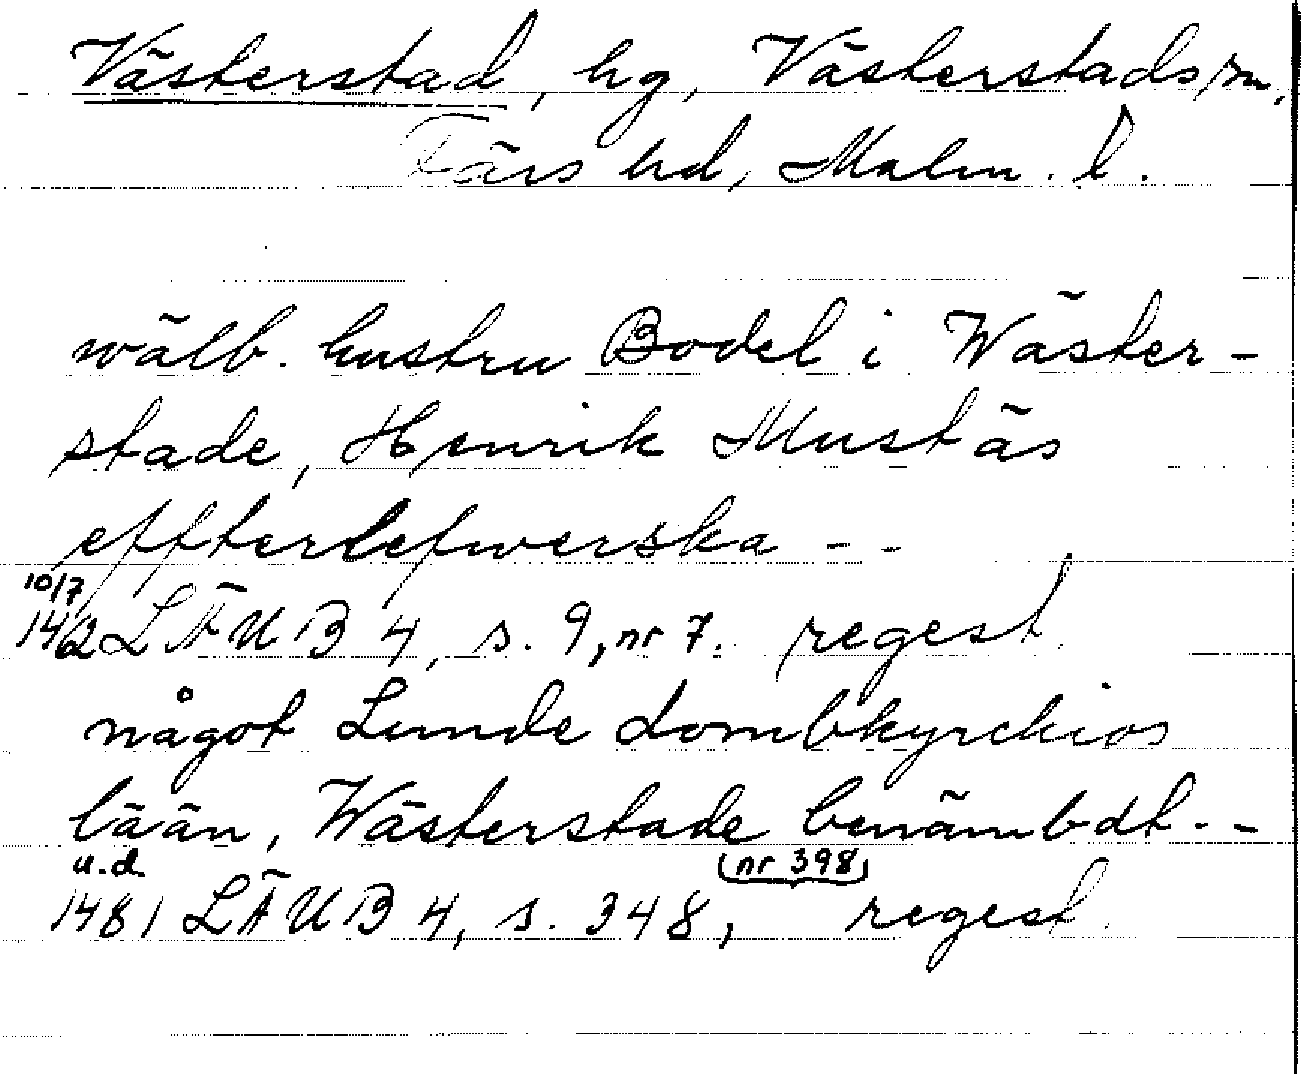 Västerstad, hg, Västerstads sn,
Färs hd, Malm. l.
wälb. hustru Bodel i Wäster-
stade, Henrik Mustäs
effterlefwerska - -
10/7
1462 LÄUB 4, s. 9, nr 7. regest.
något Lunde dombkyrckios
lään, Wästerstade benämbdt - -
u.d. nr 398
1481 LÄUB 4, s. 348, regest.